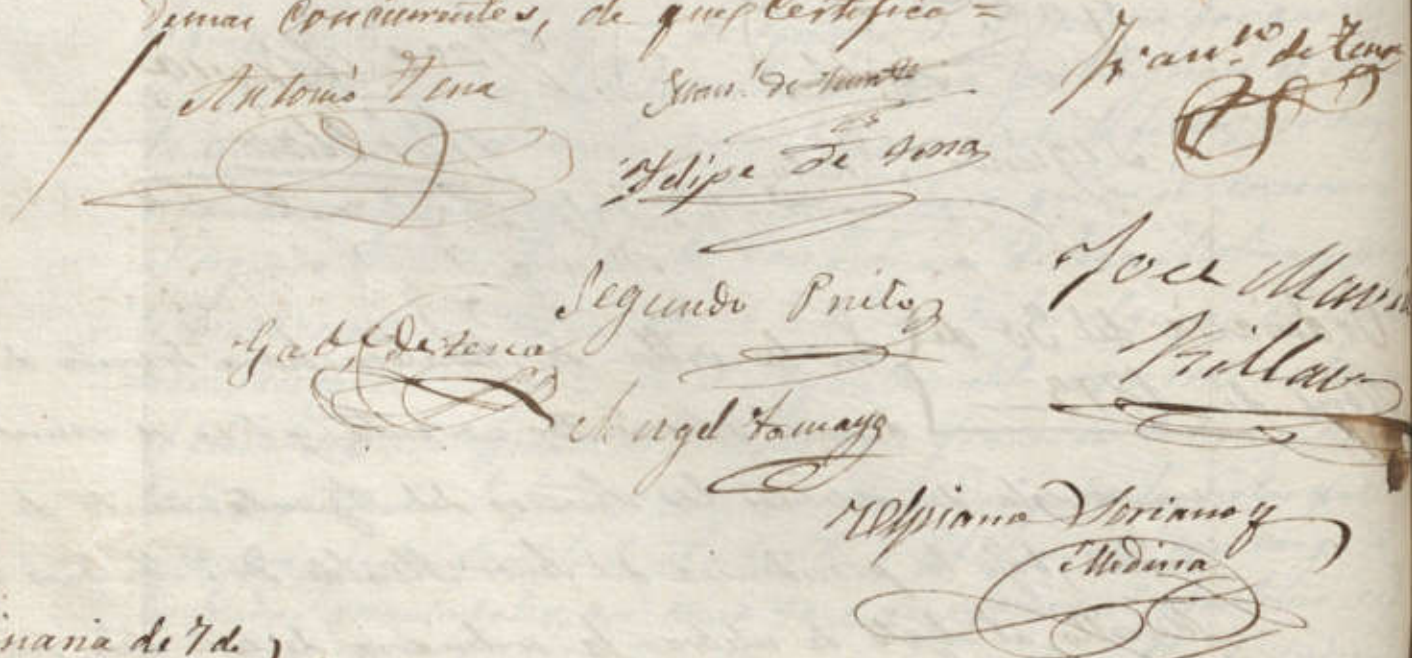 demas concurrentes, de que certifico =
Antonio Tena
Juan de
Fran.co de Tena
Felipe de Tena
Segundo Prieto
José Maria
Villar
Gab.l de Tena
Angel Tamayo
Ulpiano Soriano y
Medina
naria de 7 de